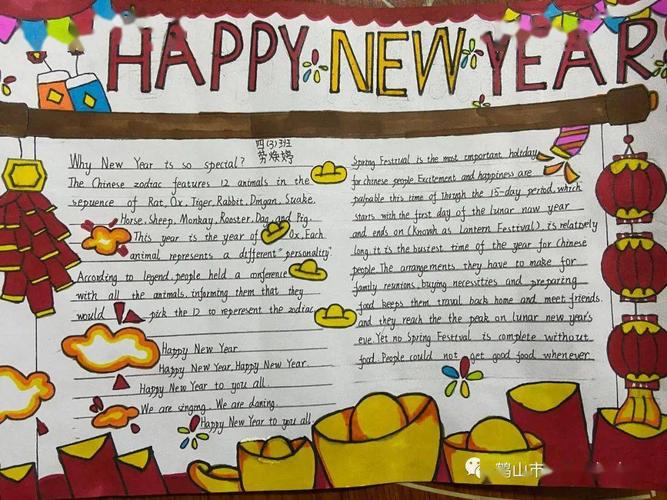 HAPPY NEW YEAR
四(3)班
劳焕婷
Why New Year is so special?
The Chinese zodiac features 12 animals in the
sepuence of Rat, Ox, Tiger, Rabbit, Dmgan, Snake,
Horse, Sheep, Monkay, Rooster, Dag, and Pig.
This year is the year of Ox, Each
animal represents a different "personality"
According to legend, people held a conference
with all the animals, informing them that they
would pick the 12 to represent the zodiac
Happy New Year
Happy New Year, Happy New Year.
Happy New Year to you all.
We are singing. We are daning.
Happy New Year to you all
Spring Festival is the most important holiday
for chinese people Excitement and happiness are
palpable this time of Through the 15-day period, which
starts with the first day of the lunar naw year
and ends on (Known as Lantern Festival), is relatively
long it is the busiest time of the year for Chinese
people The arrangements they have to make for
family reunions, buying necessities and preparing
food keeps them travel back home and meet friends.
and they reach the the peak on lunar new year's
eve. Yet no Spring Festival is complete without
food. People could not get good food whenever
鹤山市